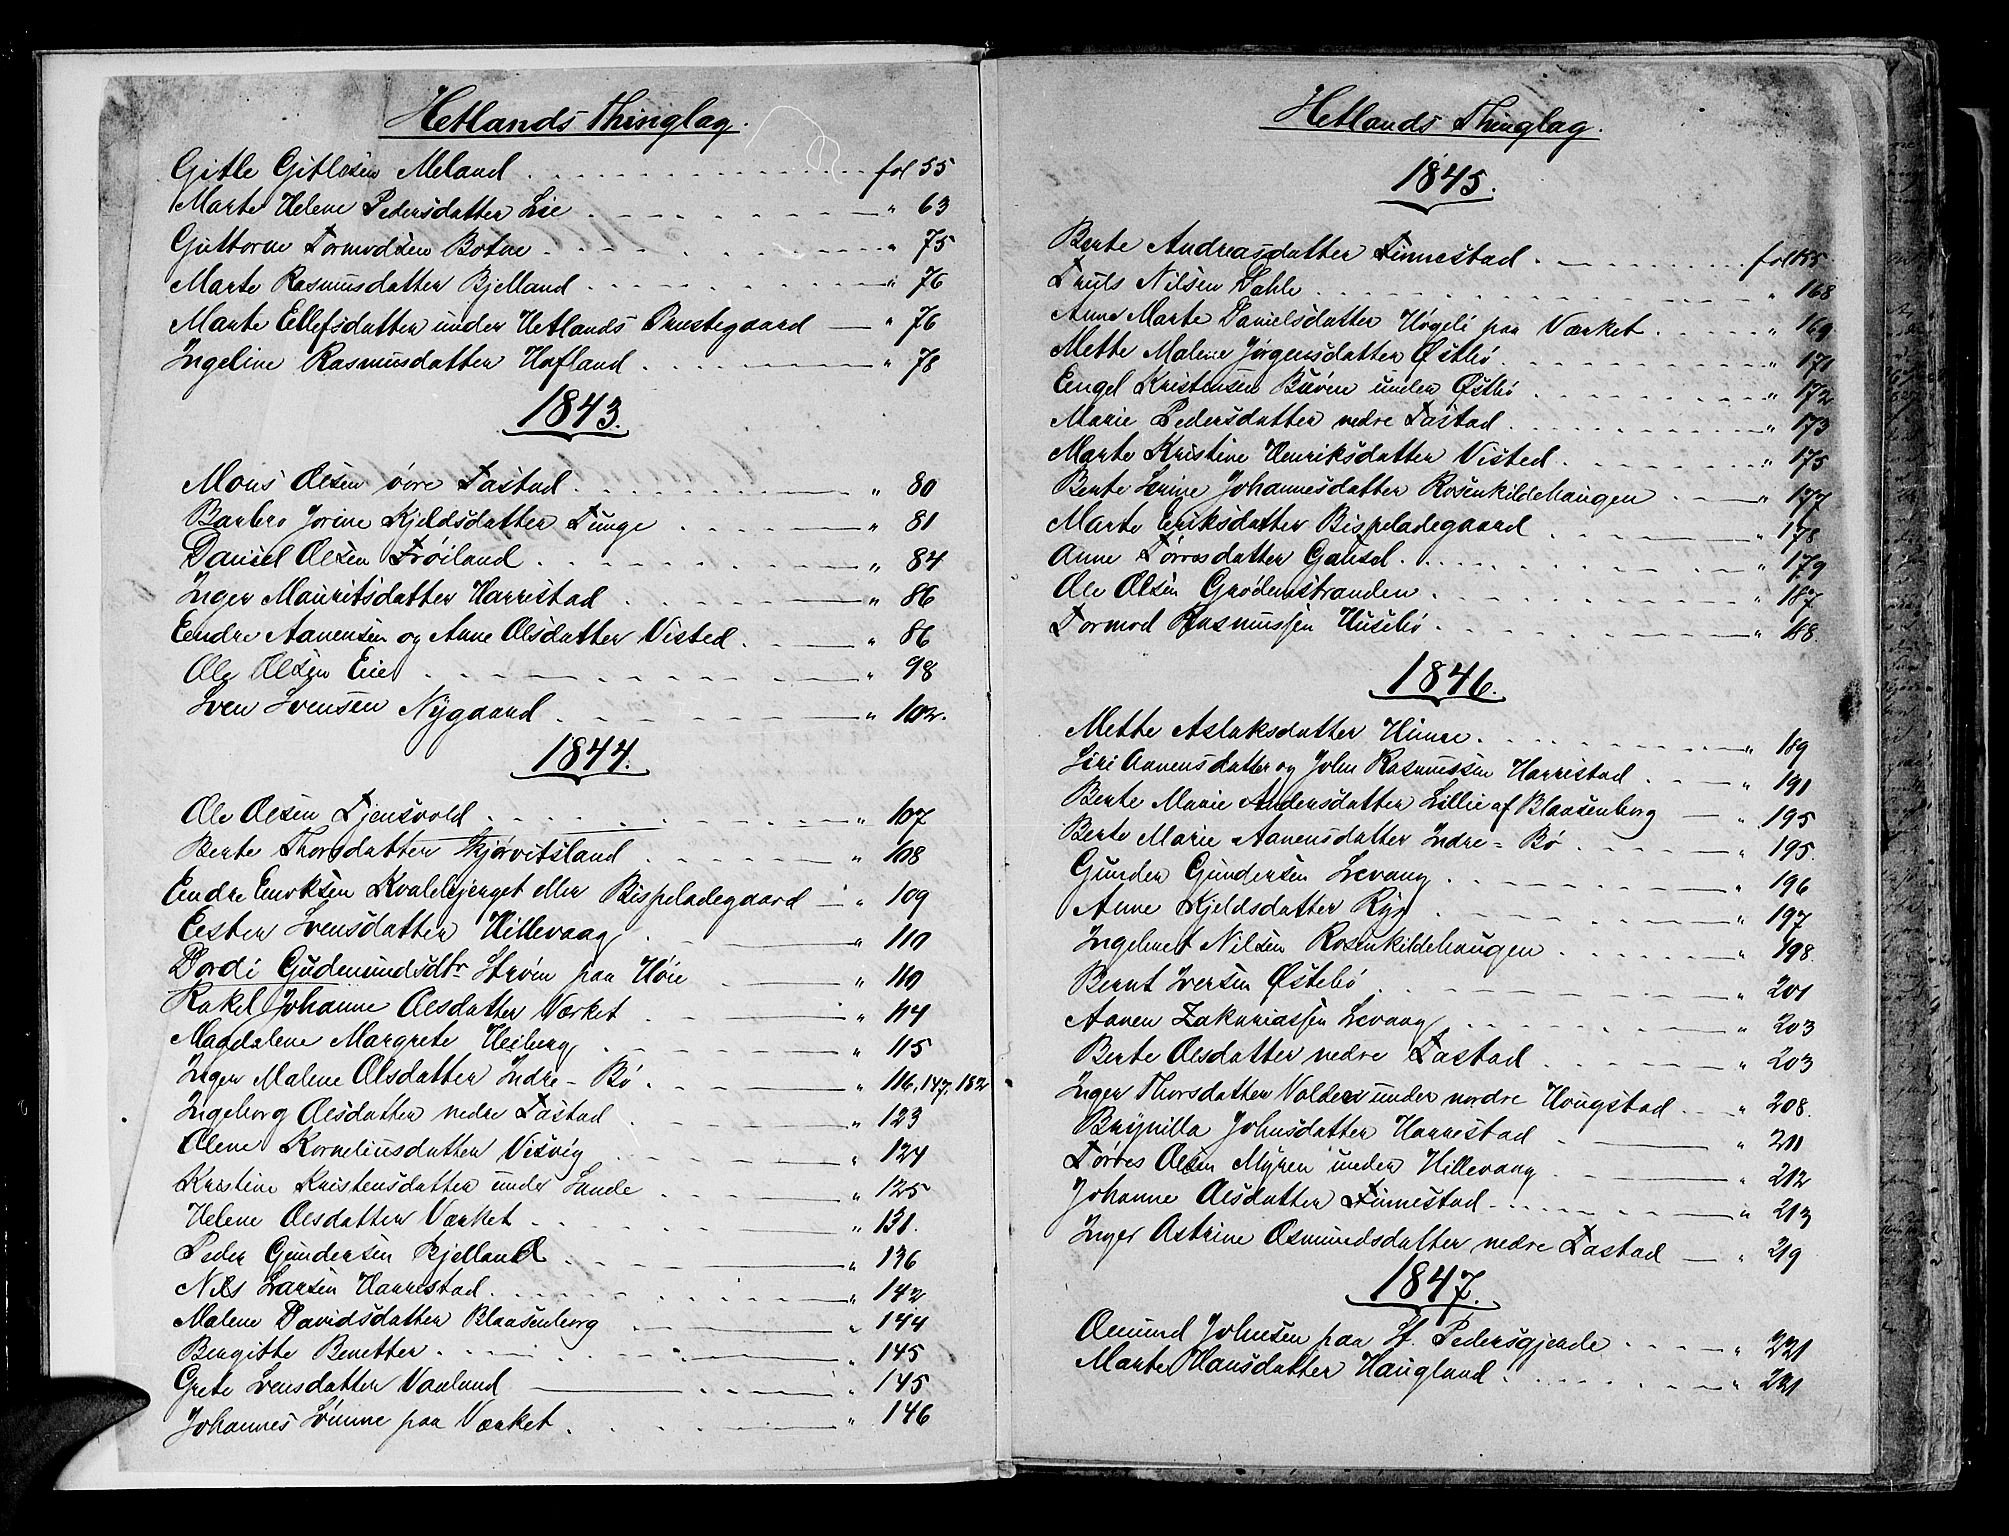 Hetlands Thinglag.
Gitle Gitlesen Meland fol 55
Marte Helene Pedersdatter Lie " 63
Guttorm Tormodsen Botne " 75
Marte Rasmusdatter Bjelland " 76
Marte Ellefsdatter under Hetlands Prestegaard " 76
Ingeline Rasmusdatter Hafland " 78
1843.
Mons Olsen øvre Tastad " 80
Barbro Jorine Kjeldsdatter Tunge " 81
Daniel Olsen Frøiland " 84
Inger Mauritsdatter Harrestad " 86
Eendre Aanensen og Anne Olsdatter Visted " 86
Ole Olsen Eie " 98
Sven Svensen Nygaard " 102.
1844.
Ole Olsen Tjensvold " 107
Berte Thorsdatter Skjørvitsland " 108
Eendre Eeriksen Kvalebjerget eller Bispeladegaard " 109
Eester Svensdatter Hillevaag " 110
Dordi Gudmundsdtr Strøm paa Høie " 110
Rakel Johanne Olsdatter Værket " 114
Magdalene Margrete Heiberg " 115
Inger Malene Olsdatter Indre-Bø " 116, 147, 182
Ingeborg Olsdatter nedre Tastad " 123
Olene Korneliusdatter Visvig " 124
Kristine Kristensdatter under Sande " 125
Helene Olsdatter Værket " 131.
Peder Gundersen Bjelland " 136
Nils Larsen Harrestad " 142
Malene Davidsdatter Blaasenborg " 144
Bergitte Benetter " 145
Grete Svensdatter Vaaland " 145
Johannes Sømme paa Værket " 146
Hetlands Thinglag.
1845.
Berte Andreasdatter Finnestad fol 155
Truls Nilsen Dahle " 168
Anne Marte Danielsdatter Høgeli paa Værket " 169
Mette Malene Jørgensdatter Østbø " 171
Eengel Kristensen Buøen under Østbø " 172
Marie Pedersdatter nedre Tastad " 173
Marte Kristine Henriksdatter Visted " 175
Berte Serine Johannesdatter Rosenkildehaugen " 177
Marte Eriksdatter Bispeladegaard " 178
Anne Tørresdatter Gausel " 179
Ole Olsen Grødemstranden " 187
Tormod Rasmussen Husebø " 188.
1846.
Mette Aslaksdatter Hinne " 189
Siri Aanensdatter og John Rasmussen Harrestad " 191
Berte Marie Andersdatter Lillie af Blaasenborg " 195
Berte Marie Aanensdatter Indre-Bø " 195.
Gunder Gundersen Levang " 196
Anne Kjeldsdatter Ryg " 197
Ingebret Nilsen Rosenkildehaugen " 198.
Bernt Iversen Østebø " 201
Aanen Zakariassen Levang " 203
Berte Olsdatter nedre Tastad " 203
Inger Thorsdatter Volden under nordre Hougstad " 208.
Brynilla Johnsdatter Harrestad " 211
Tørres Olsen Myren under Hillevaag " 212
Johanne Olsdatter Finnestad " 213
Inger Astrine Osmundsdatter nedre Tastad " 219
1847.
Omund Johnsen paa St. Pedersgjerde " 221
Marte Hansdatter Haugland " 221